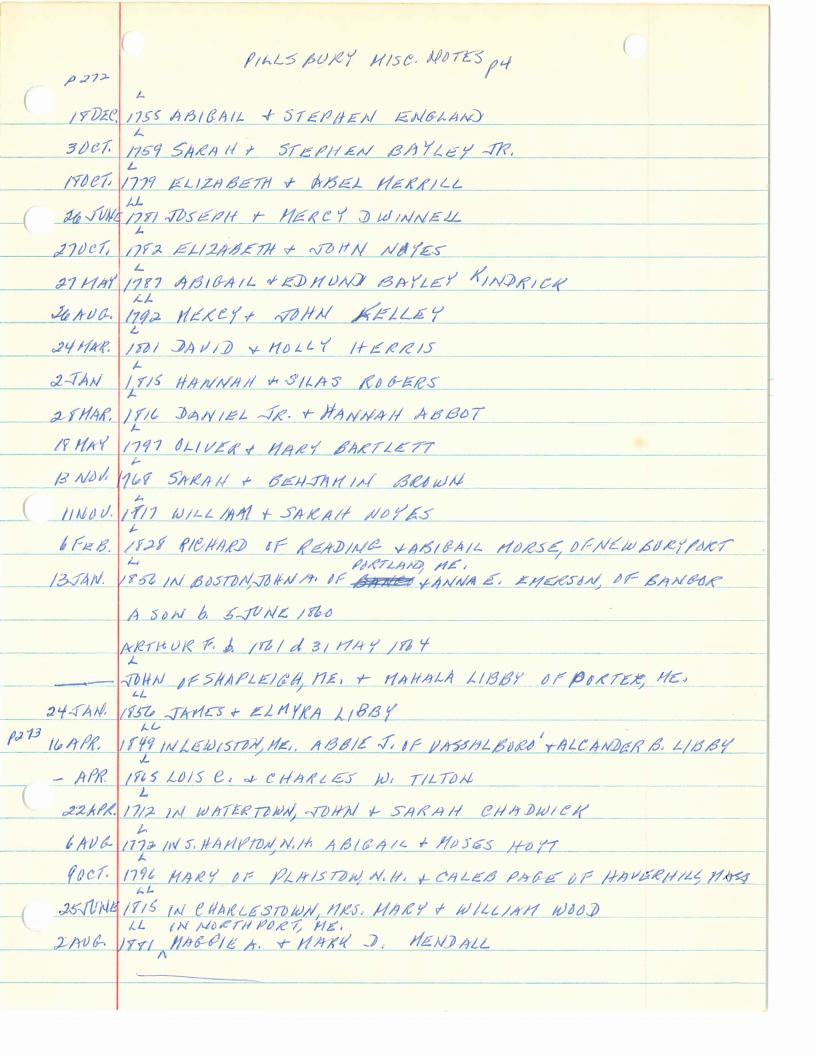 PILLSBURY MISC. NOTES p4
P272
L
18 DEC. 1755 ABIGAIL + STEPHEN ENGLAND
L
3 OCT. 1759 SARAH + STEPHEN BAYLEY JR.
L
18 OCT. 1779 ELIZABETH + ABEL MERRILL
LL
26 JUNE 1781 JOSEPH + MERCY DWINNELL
L
27 OCT. 1782 ELIZABETH + JOHN NOYES
L
27 MAY 1787 ABIGAIL + EDMUND BAYLEY KINDRICK
LL
26 AUG. 1792 MERCY + JOHN KELLEY
L
24 MAR. 1801 DAVID + MOLLY HERRIS
L
2 JAN 1815 HANNAH + SILAS ROGERS
L
28 MAR. 1816 DANIEL JR. + HANNAH ABBOT
L
18 MAY 1797 OLIVER + MARY BARTLETT
L
13 NOV. 1768 SARAH + BENJAMIN BROWN
L
11 NOV. 1817 WILLIAM + SARAH NOYES
L
6 FEB. 1828 RICHARD OF READING + ABIGAIL MORSE, OF NEWBURYPORT
L PORTLAND, ME.
13 JAN. 1856 IN BOSTON, JOHN A. OF + ANNA E. EMERSON, OF BANGOR
A SON b. 5 JUNE 1860
ARTHUR F. b. 1861 d 31 MAY 1864
L
JOHN OF SHAPLEIGH, ME. + MAHALA LIBBY OF PORTER, ME.
LL
24 JAN. 1856 JAMES + ELMYRA LIBBY
P273 LL
16 APR. 1849 IN LEWISTON, ME. ABBIE J. OF VASSALBORO' + ALCANDER B. LIBBY
L
- APR. 1865 LOIS C. + CHARLES W. TILTON
L
22 APR. 1712 IN WATERTOWN, JOHN + SARAH CHADWICK
L
6 AUG 1772 IN S. HAMPTON, N.H. ABIGAIL + MOSES HOYT
L
9 OCT. 1796 MARY OF PLAISTOW, N.H. + CALEB PAGE OF HAVERHILL, MASS
LL
25 JUNE 1815 IN CHARLESTOWN, MRS. MARY + WILLIAM WOOD
LL IN NORTHPORT, ME.
2 AUG. 1881 ^ MAGGIE A. + MARK D. MENDALL